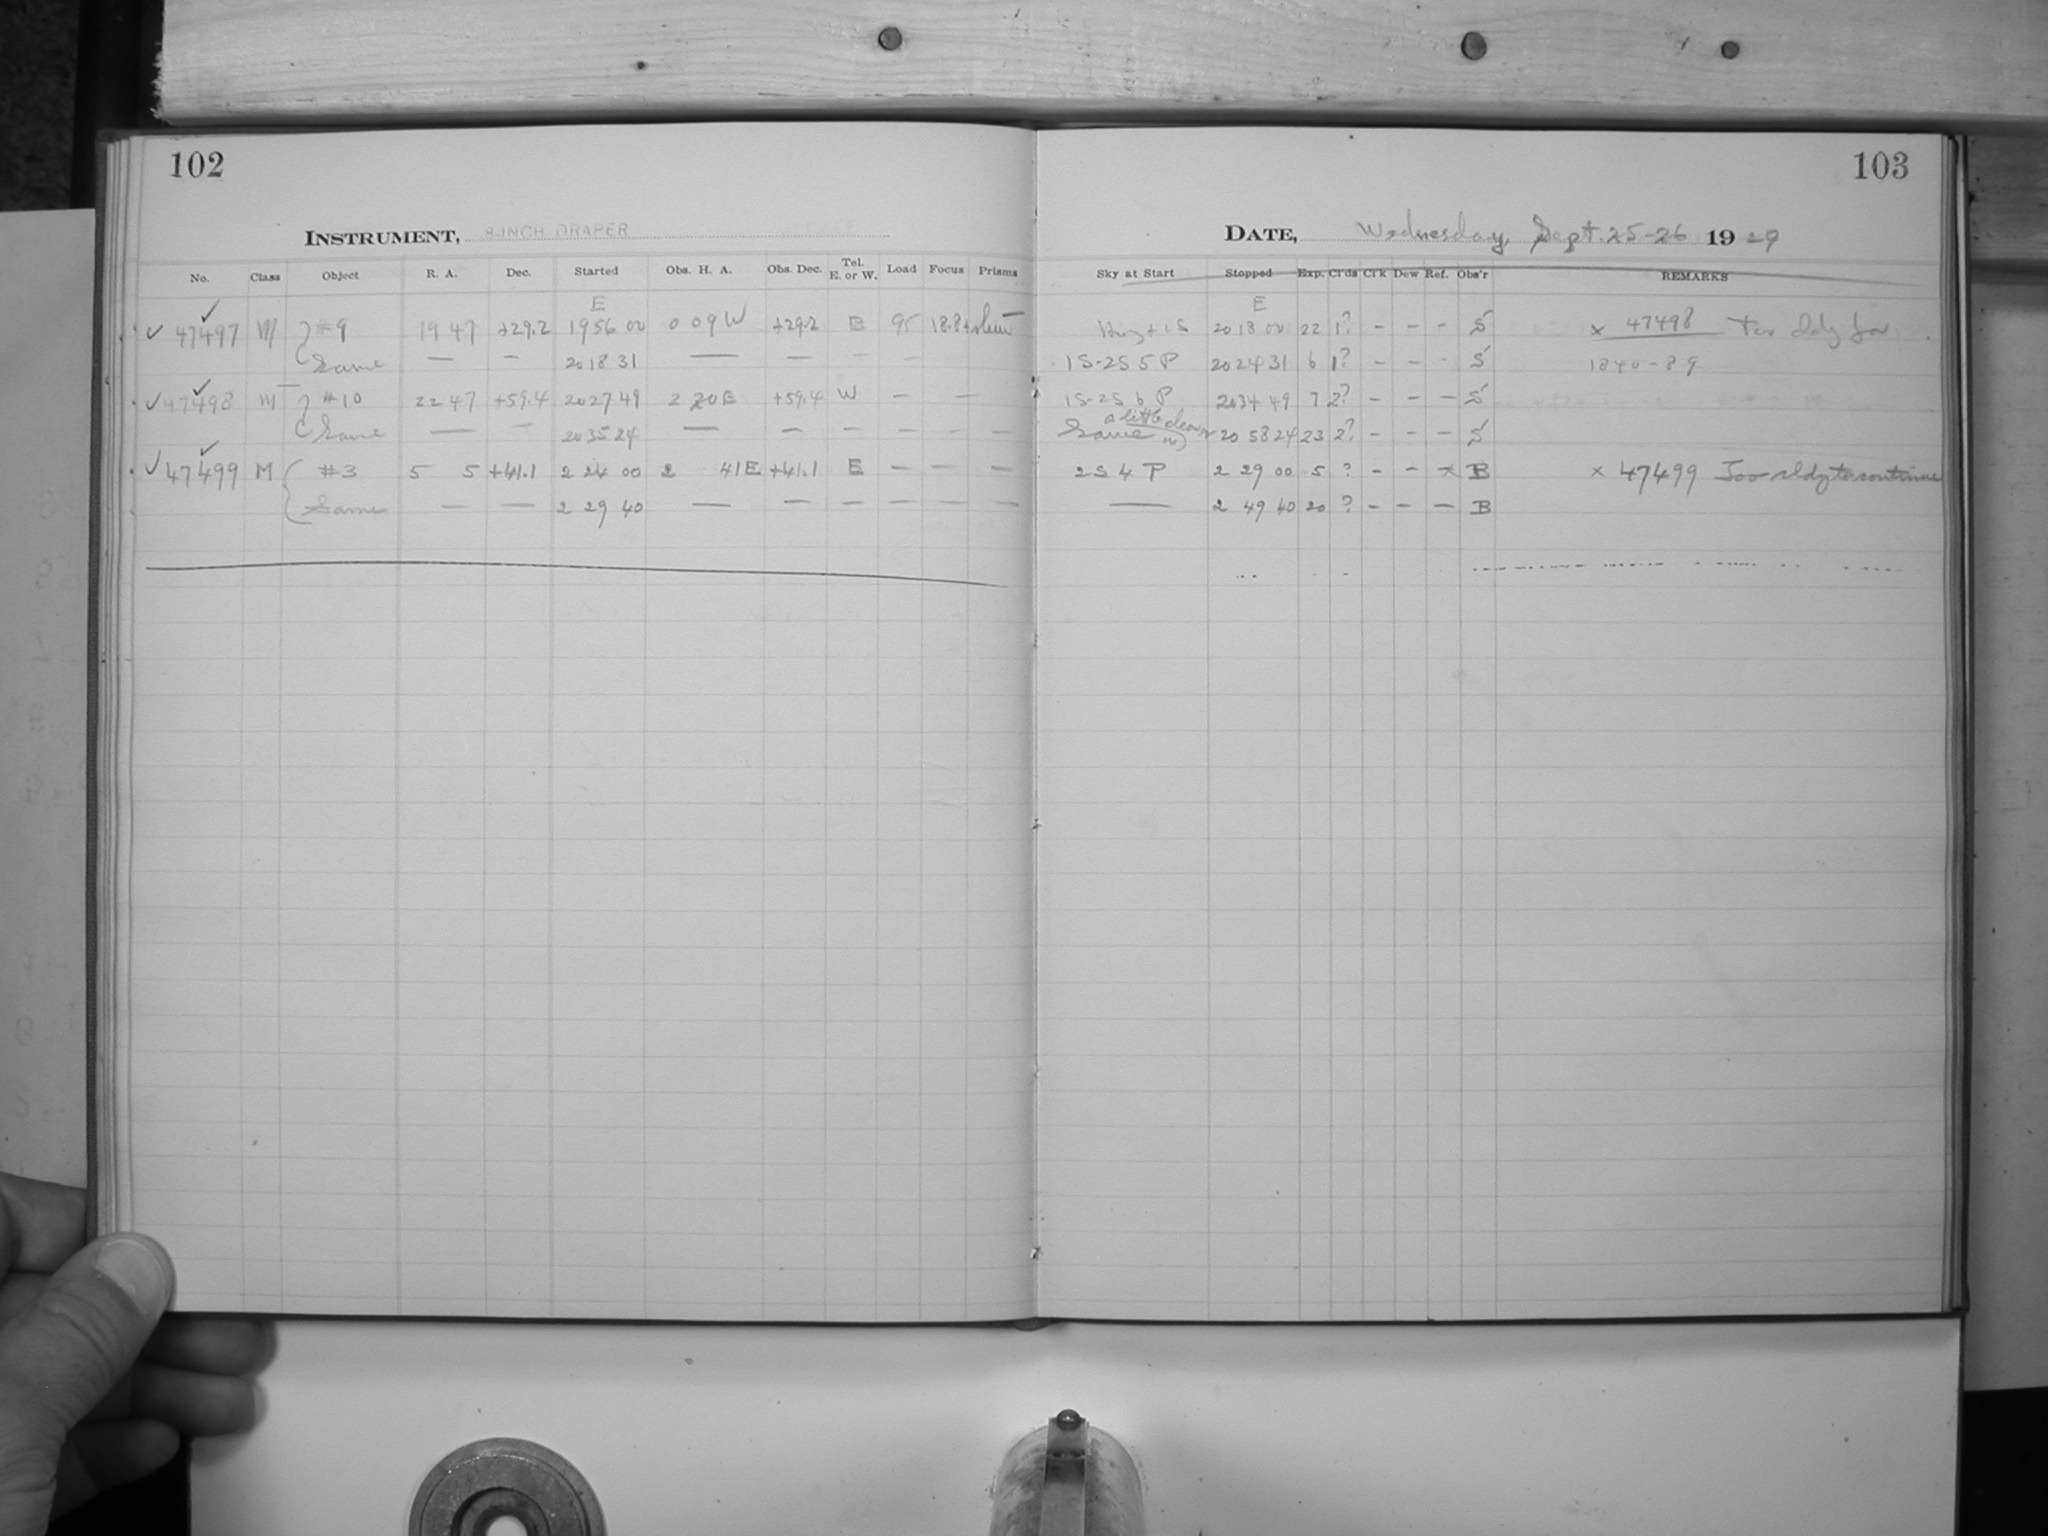 102
INSTRUMENT, 8-INCH DRAPER
No. Class Object R. A. Dec. Started Obs. H. A. Obs. Dec. Tel. E. or W. Load Focus Prisms
E
✓ 47497 M #9 19 47 +29.2 19 56 00 0 09 W +29.2 E 95 18.8
Same — — 20 18 31 — — — —
✓ 47498 M #10 22 47 +59.4 20 27 49 2 20 E +59.4 W — —
Same — — 20 35 24 — — — — — —
✓ 47499 M #3 5 5 +41.1 2 24 00 2 41 E +41.1 E — — —
Same — — 2 29 40 — — — — — —
103
DATE, Wednesday, Sept. 25-26 1929
Sky at Start Stopped Exp. Cl'ds Cl'k Dew Ref. Obs'r REMARKS
E
20 18 00 22 1? - - - S × 47498 Too cldy for
1S-2S 5 P 20 24 31 6 1? - - - S 1840-89
1S-2S 6 P 20 34 49 7 2? - - - S
a little clearer
Same 20 58 24 23 2? - - - S
2S 4 P 2 29 00 5 ? - - × B × 47499 Too cldy to continue
— 2 49 40 20 ? - - - B